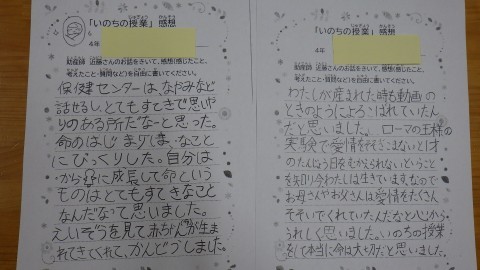 「いのちの授業」感想
じゅぎょう かんそう
4年
助産師 近藤さんのお話をきいて、感想(感じたこと、
考えたこと・質問など)を自由に書いてください。
保健センターは、なやみなど
話せるし、とてもすてきで思いや
りのある所だなーと思った。
命のはじまりが
なこと
にびっくりした。自分は
から
に成長して命という
ものはとてもすてきなこと
なんだなって思いました。
えいぞうを見て赤ちゃんが生ま
れてきてくれて、かんどうしました
「いのちの授業」感想
じゅぎょう かんそう
4年
助産師 近藤さんのお話をきいて、感想(感じたこと、
考えたこと・質問など)を自由に書いてください。
わたしが産まれた時も動画の
ときのようによろこばれていたん
だと思いました。ローマの王様の
実験で愛情をそそがないと1才
のたん生日をむかえられないということ
を知り今わたしは生きています。なので
お母さんやお父さんは愛情をたくさん
そそいでくれていたんだなと心から
うれしく思いました。いのちの授業
をして本当に命は大切だと思いました。